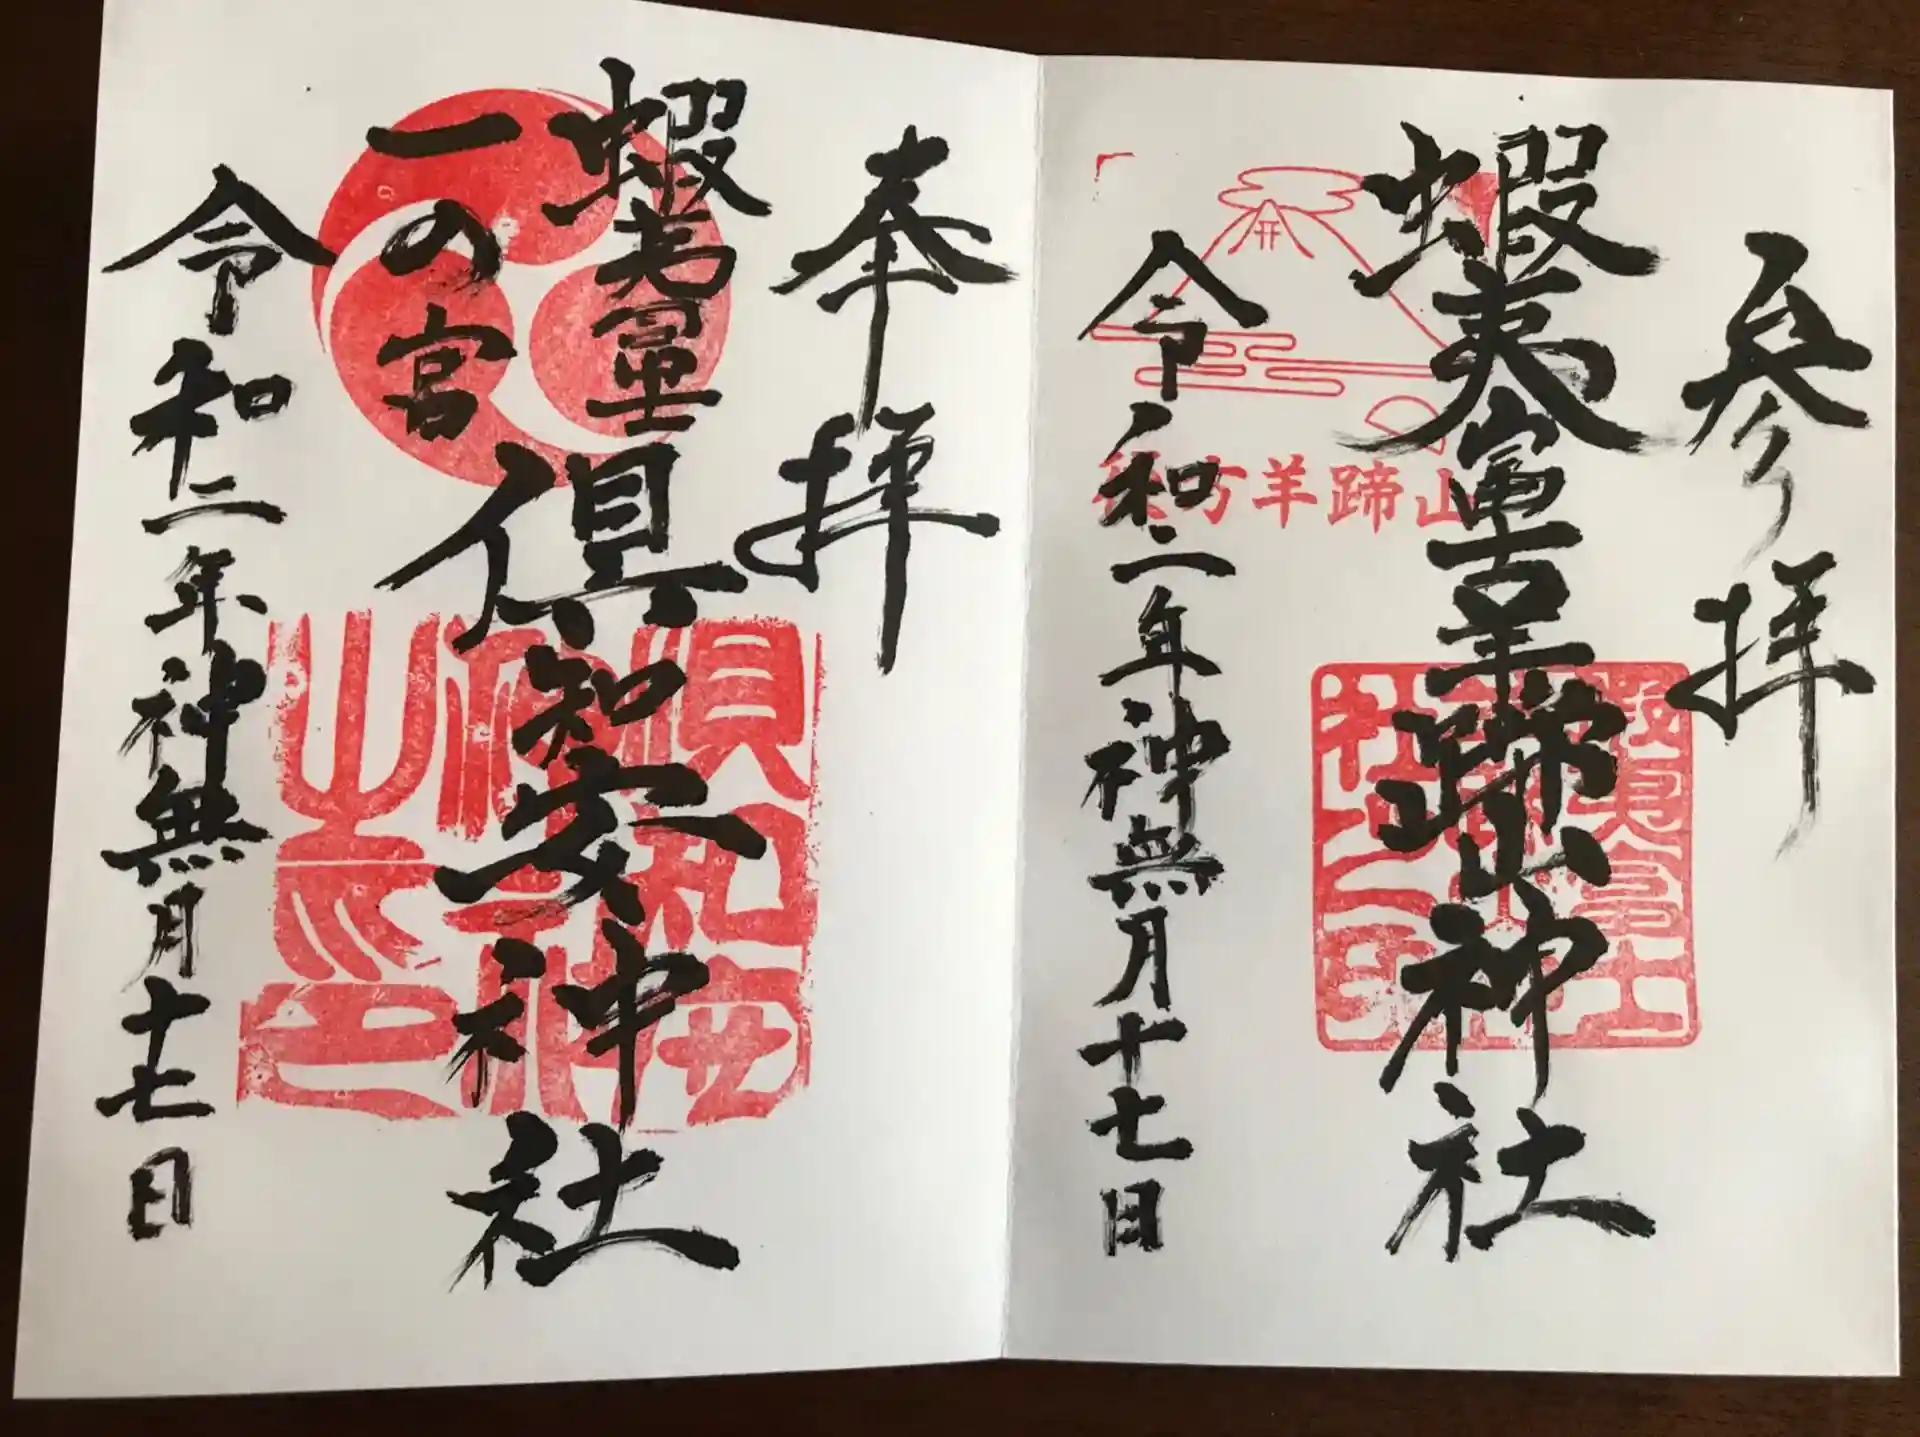 参拝
蝦夷富士羊蹄山神社
後方羊蹄山
令和二年神無月十七日
奉拝
蝦夷富士
一の宮
倶知安神社
令和二年神無月十七日